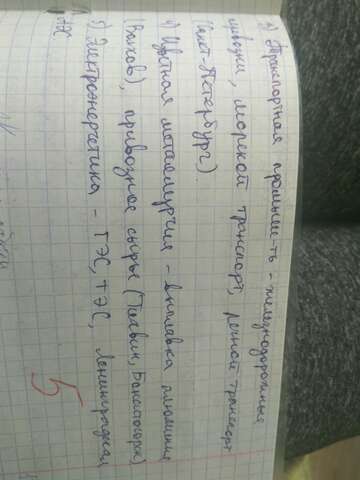 2) Транспортная промыш-ть - железнодорожные
привозки, морской транспорт, речной транспорт
(Санкт-Петербург)
4) Цветная металлургия - выплавка алюминия
(Волхов), привозное сырье (Тихвин, Бокситогорск)
5) Электроэнергетика - ГЭС, ТЭС, Ленинградская
АЭС
5